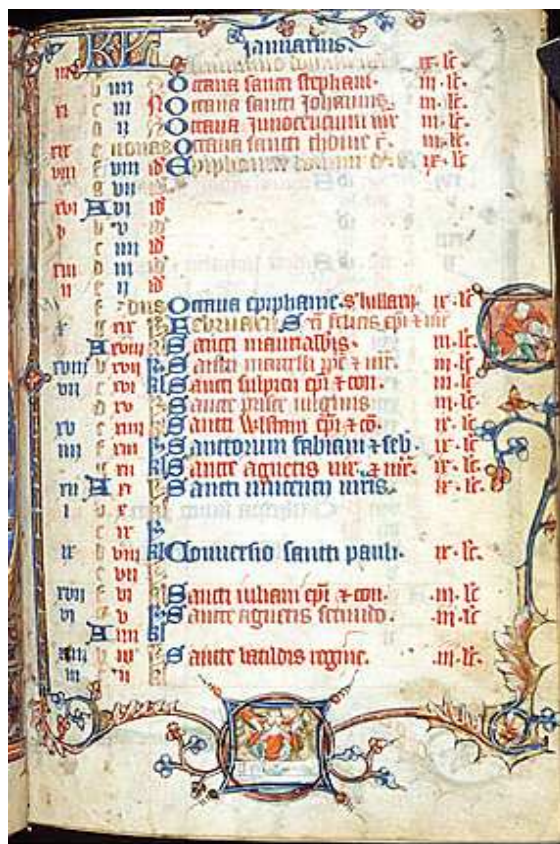 KL Januarius.
iii ix. lc
b iiii Octaua sancti stephani. iii. lc.
xi c iii N Octaua sancti Johannis. iii. lc.
d ii Octaua Innocencium iii. lc.
xix e nonas Octaua sancti thome iii. lc.
viii f viii id Epiphania domini ix. lc.
g vii
xvi A vi id
v b v id
c iiii id
xiii d iii id
ii e ii id
f idus Octaua epiphanie. s hillarii. ix. lc
x g xix februarii. Sci felicis
A xviii Sancti mauri abbis. iii. lc.
xviii b xvii Sancti marcelli iii. lc.
vii c xvi kl Sancti sulpicii epi & con. iii. lc.
d xv Sancte prisce uirginis iii. lc.
xv e xiiii Sancti Wlstani epi & co. ix. lc.
iiii f xiii Sanctorum fabiani & seb. ix. lc.
g xii kl Sancte agnetis uir. & ix. lc.
xii A xi Sancti uincencii ix. lc.
i b x
c ix
ix d viii kl Conuersio sancti pauli. ix. lc.
e vii
xvii f vi Sancti iuliani epi & con. iii. lc
vi g v Sancte agnetis secundo. iii. lc
A iiii kl
xiiii b iii Sancte batildis regine. iii. lc.
iii c ii